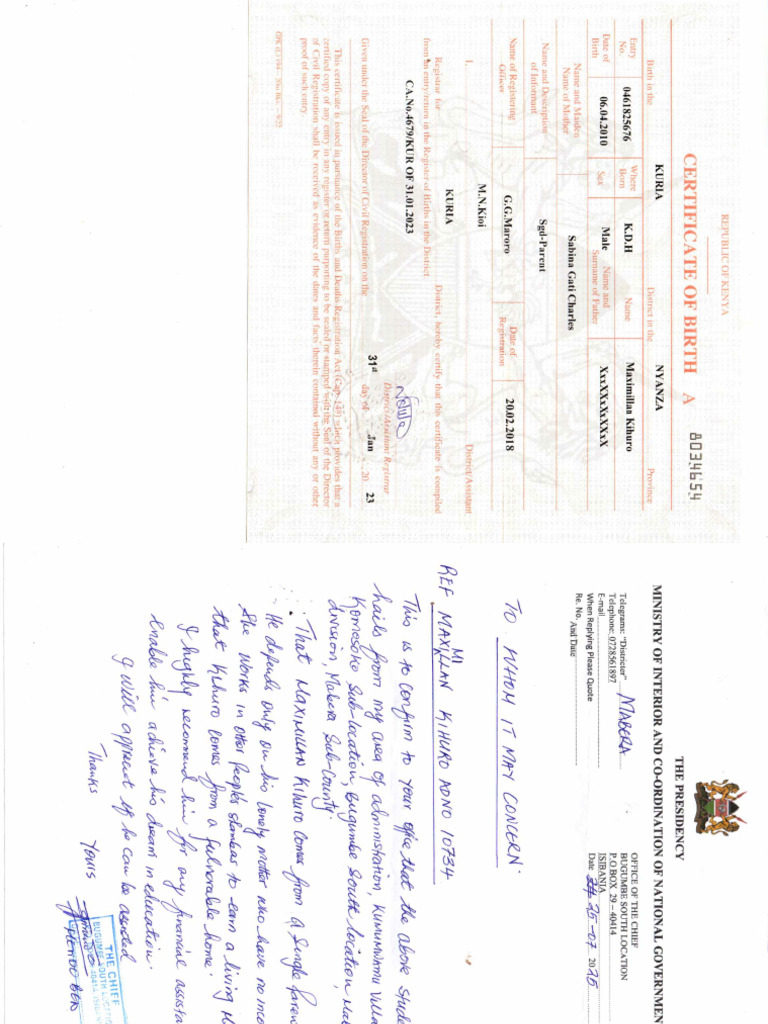 REPUBLIC OF KENYA
CERTIFICATE OF BIRTH A 8034654
Birth in the KURIA District in the NYANZA Province
Entry No. 0461825676 Where Born K.D.H Name Maximillan Kihuro
Date of Birth 06.04.2010 Sex Male Name and Surname of Father XxxXXxXxXXxX
Name and Maiden Name of Mother Sabina Gati Charles
Name and Description of Informant Sgd-Parent
Name of Registering Officer G.G.Maroro Date of Registration 20.02.2018
I, M.N.Kioi District/Assistant
Registrar for KURIA District, hereby certify that this certificate is compiled
from an entry/return in the Register of Births in the District.
CA.No.4679/KUR OF 31.01.2023
District/Assistant Registrar
Given under the Seal of the Director of Civil Registration on the 31st day of Jan 20 23
This certificate is issued in pursuance of the Births and Deaths Registration Act (Cap. 149) which provides that a
certified copy of any entry in any register or return purporting to be sealed or stamped with the Seal of the Director
of Civil Registration shall be received as evidence of the dates and facts therein contained without any or other
proof of such entry.
THE PRESIDENCY
MINISTRY OF INTERIOR AND CO-ORDINATION OF NATIONAL GOVERNMEN
Telegrams: "Districter" MABERA
Telephone: 0728561897
E-mail
When Replying Please Quote
Re. No. And Date
OFFICE OF THE CHIEF
BUGUMBE SOUTH LOCATION
P.O BOX 29 – 40414
ISIBANIA
Date 25-07 2025
TO WHOM IT MAY CONCERN.
REF MAXIMILLAN KIHURO ADNO 10734
This is to confirm to your office that the above stude
hails from my area of administration, Kumumwamu Villa
Komesoko Sub-location, Bugumbe South location, Mab
division, Mabera Sub-County.
That Maximillan Kihuro comes from a single paren
He depends only on his lonely mother who have no inco
She works in other peoples shambas to earn a living th
that Kihuro comes from a vulnerable home.
I highly recommend him for any financial assista
enable him achieve his dream in education.
I will appreciat if he can be assisted
Thanks Yours
THE CHIEF
BUGUMBE SOUTH LOCATION